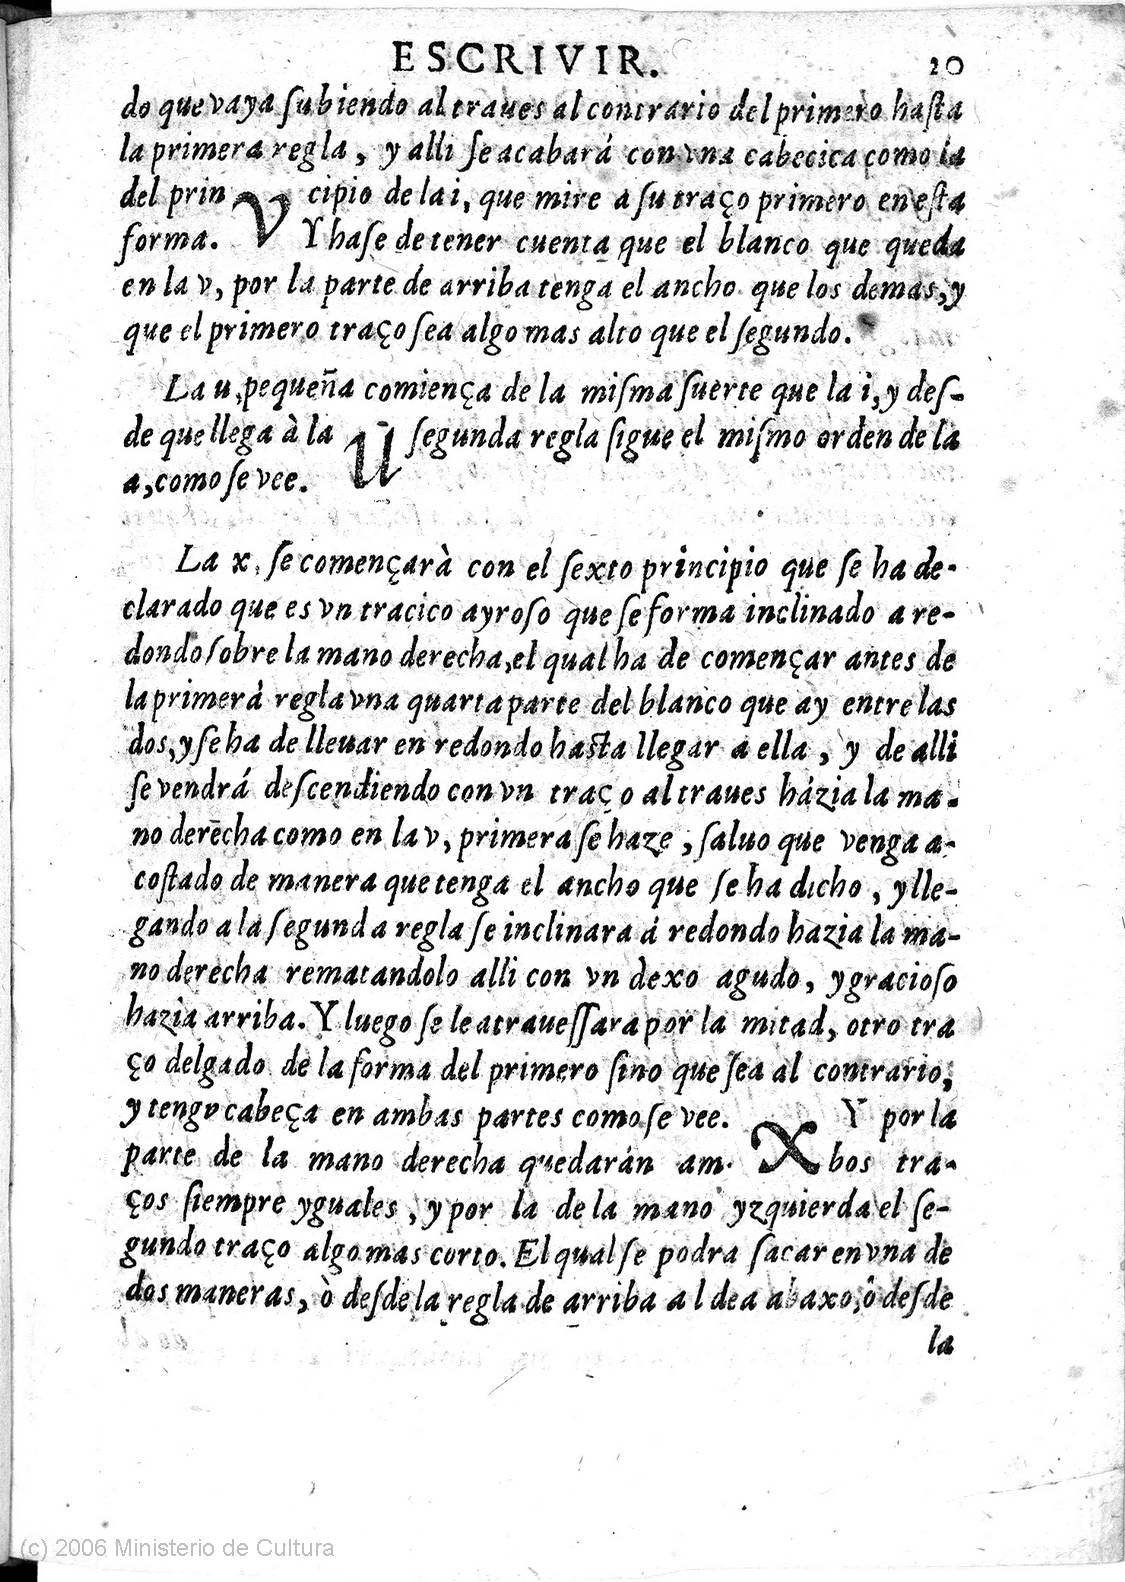 ESCRIVIR. 20
do que vaya ſubiendo al traues al contrario del primero haſta
la primera regla, y alli ſe acabará con vna cabecica como la
del prin V cipio de la i, que mire a ſu traço primero en eſta
forma. Y haſe de tener cuenta que el blanco que queda
en la v, por la parte de arriba tenga el ancho que los demas, y
que el primero traço ſea algo mas alto que el ſegundo.
La u, pequeña comiença de la miſma ſuerte que la i, y deſ-
de que llega à la u ſegunda regla ſigue el miſmo orden de la
a, como ſe vee.
La x, ſe començarà con el ſexto principio que ſe ha de-
clarado que es vn tracico ayroſo que ſe forma inclinado a re-
dondo ſobre la mano derecha, el qual ha de començar antes de
la primerà regla vna quarta parte del blanco que ay entre las
dos, y ſe ha de lleuar en redondo haſta llegar a ella, y de alli
ſe vendrá deſcendiendo con vn traço al traues házia la ma-
no derecha como en la v, primera ſe haze, ſaluo que venga a-
coſtado de manera que tenga el ancho que ſe ha dicho, y lle-
gando a la ſegunda regla ſe inclinara á redondo hazia la ma-
no derecha rematandolo alli con vn dexo agudo, y gracioſo
hazia arriba. Y luego ſe le atraueſſara por la mitad, otro tra
ço delgado de la forma del primero ſino que ſea al contrario,
y tengv cabeça en ambas partes como ſe vee. Y por la
parte de la mano derecha quedarán am- x bos tra-
ços ſiempre yguales, y por la de la mano yzquierda el ſe-
gundo traço algo mas corto. El qual ſe podra ſacar en vna de
dos maneras, ò deſde la regla de arriba al dea abaxo, ô deſde
la
(c) 2006 Ministerio de Cultura